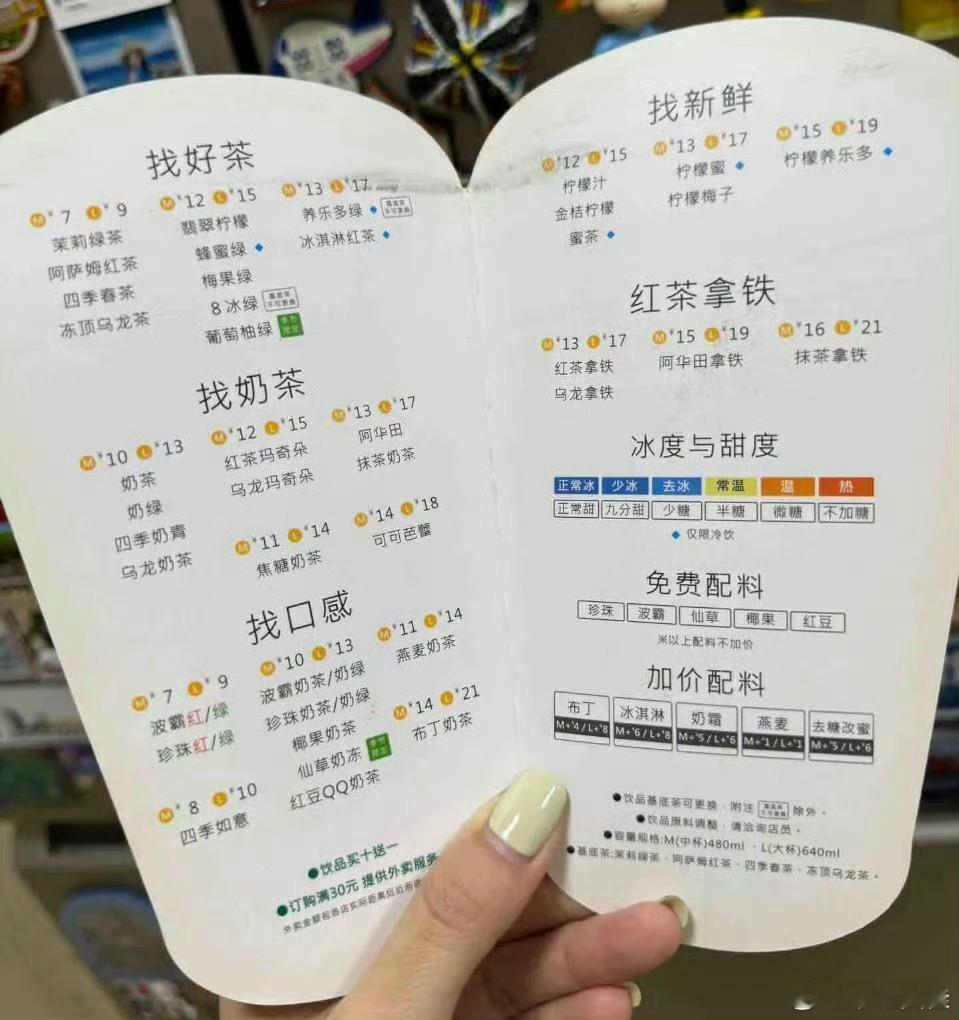 找好茶
M ¥7 L ¥9
茉莉绿茶
阿萨姆红茶
四季春茶
冻顶乌龙茶
M ¥12 L ¥15
翡翠柠檬
蜂蜜绿
梅果绿
8冰绿 基底茶不可更换
葡萄柚绿 季节限定
M ¥13 L ¥17
养乐多绿 基底茶不可更换
冰淇淋红茶
找奶茶
M ¥10 L ¥13
奶茶
奶绿
四季奶青
乌龙奶茶
M ¥12 L ¥15
红茶玛奇朵
乌龙玛奇朵
M ¥13 L ¥17
阿华田
抹茶奶茶
M ¥11 L ¥14
焦糖奶茶
M ¥14 L ¥18
可可芭蕾
找口感
M ¥7 L ¥9
波霸红/绿
珍珠红/绿
M ¥8 L ¥10
四季如意
M ¥10 L ¥13
波霸奶茶/奶绿
珍珠奶茶/奶绿
椰果奶茶
仙草奶冻 季节限定
红豆QQ奶茶
M ¥11 L ¥14
燕麦奶茶
M ¥14 L ¥21
布丁奶茶
●饮品买十送一
●订购满30元 提供外卖服务
外卖金额视各店实际距离
找新鲜
M ¥12 L ¥15
柠檬汁
金桔柠檬
蜜茶
M ¥13 L ¥17
柠檬蜜
柠檬梅子
M ¥15 L ¥19
柠檬养乐多
红茶拿铁
M ¥13 L ¥17
红茶拿铁
乌龙拿铁
M ¥15 L ¥19
阿华田拿铁
M ¥16 L ¥21
抹茶拿铁
冰度与甜度
正常冰 少冰 去冰 常温 温 热
正常甜 九分甜 少糖 半糖 微糖 不加糖
仅限冷饮
免费配料
珍珠 波霸 仙草 椰果 红豆
※以上配料不加价
加价配料
布丁 冰淇淋 奶霜 燕麦 去糖改蜜
M+¥4/L+¥8 M+¥6/L+¥8 M+¥5/L+¥6 M+¥1/L+¥1 M+¥5/L+¥6
●饮品基底茶可更换，附注 基底茶不可更换 除外。
●饮品原料调整，请洽询店员。
●容量规格:M(中杯)480ml 、L(大杯)640ml
●基底茶:茉莉绿茶、阿萨姆红茶、四季春茶、冻顶乌龙茶。